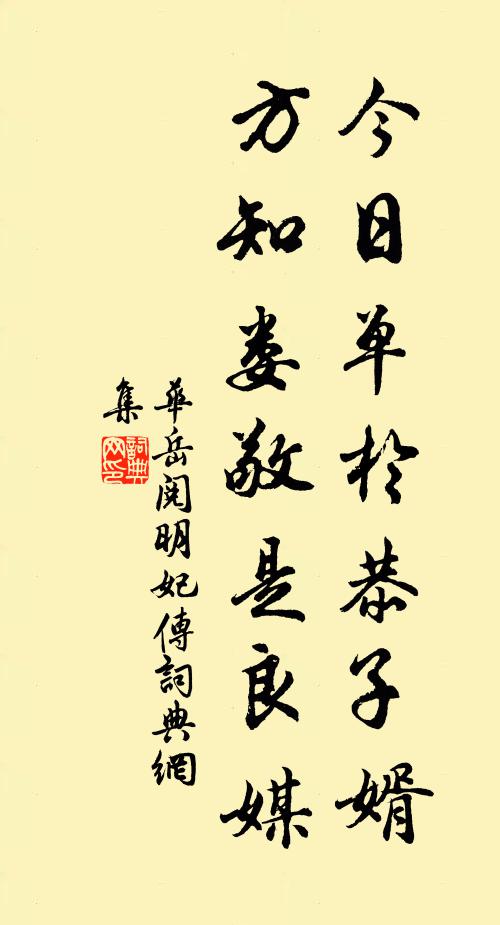 今日单於恭子婿
方知娄敬是良媒
華岳閱明妃傳詞典網
集
詞典
网印